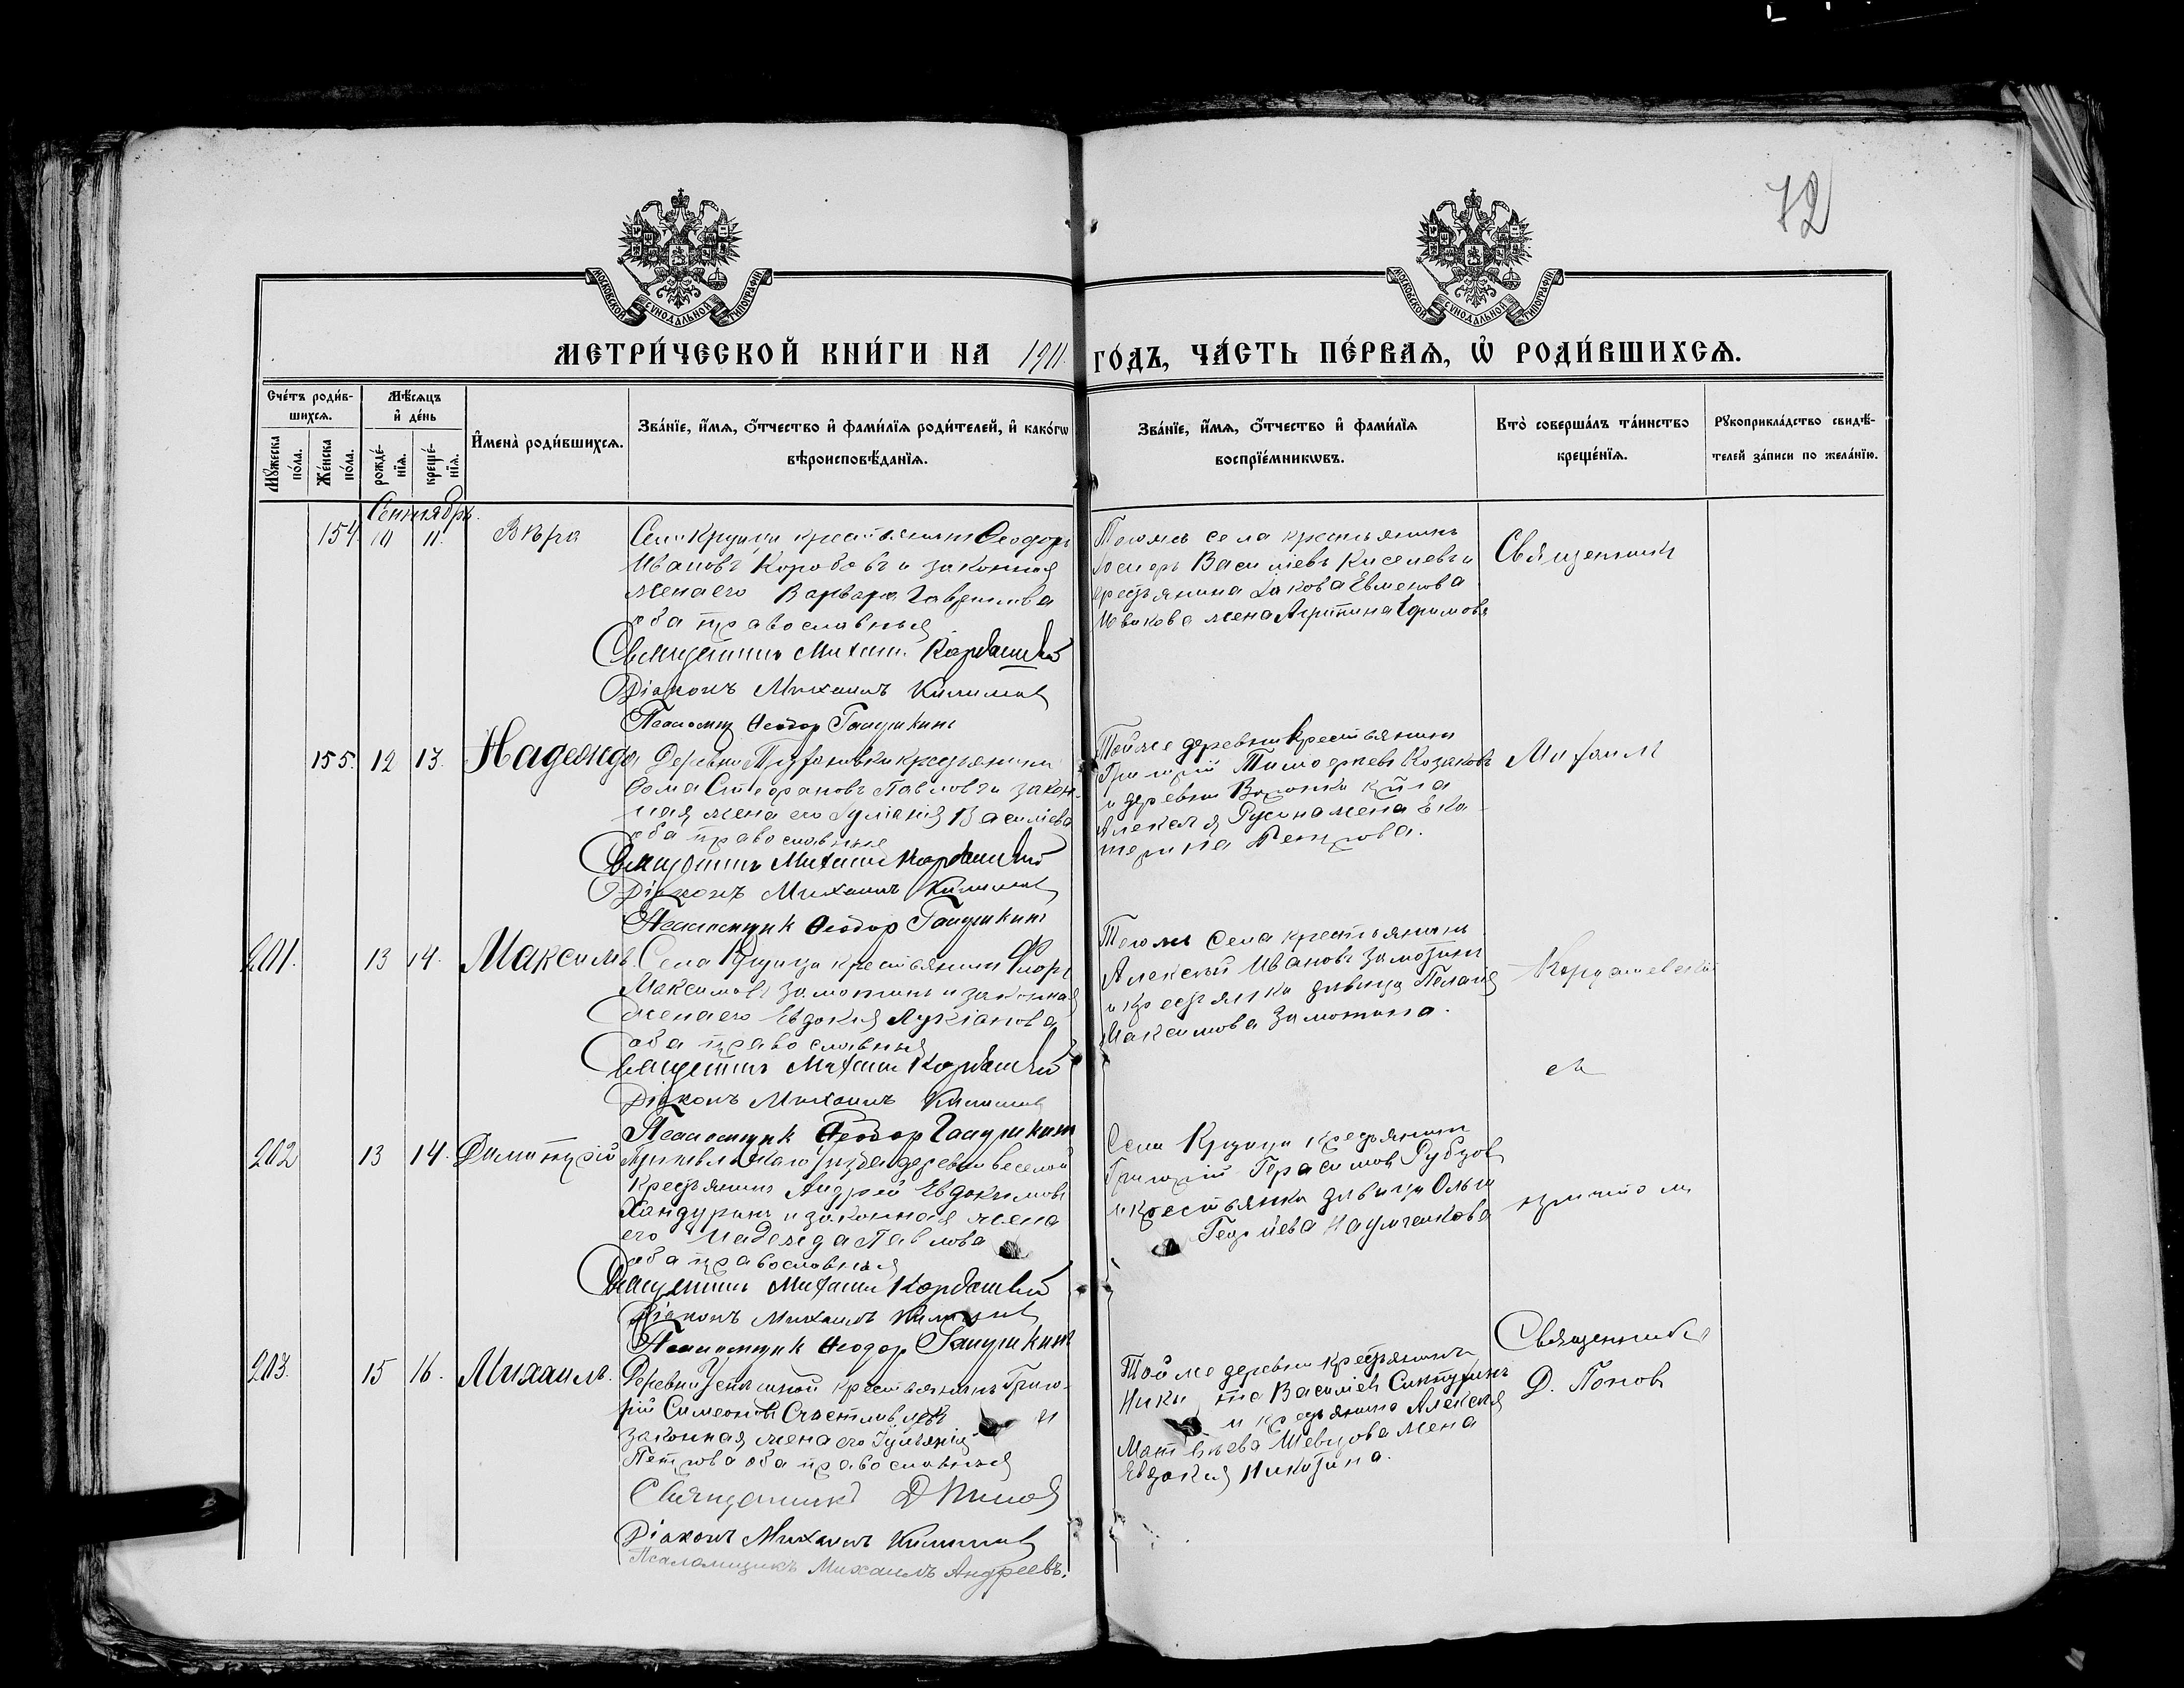 72
МОСКОВСКОЙ СѴНОДАЛЬНОЙ ТИПОГРАФІИ
МОСКОВСКОЙ СѴНОДАЛЬНОЙ ТИПОГРАФІИ
МЕТРИ́ЧЕСКОЙ КНИ́ГИ НА 1911 ГО́ДЪ, ЧА́СТЬ ПЕ́РВАѦ, Ѡ РОДИ́ВШИХСѦ.
Сче́тъ роди́вшихсѧ.
Мꙋ́жеска по́ла.
Же́нска по́ла.
Мѣ́сѧцъ и де́нь
рожде́нїѧ.
креще́нїѧ.
Имена̀ роди́вшихсѧ.
Зва́нїе, и́мѧ, о́тчество и фами́лїѧ роди́телей, и како́гѡ
вѣроисповѣ́данїѧ.
Зва́нїе, и́мѧ, о́тчество и фами́лїѧ
воспрїе́мникѡвъ.
Кто̀ соверша́лъ та́инство
креще́нїѧ.
Рꙋкоприкла́дство свидѣ́-
телей за́писи по жела́нїю.
Сентябрь.
154 10 11. Вѣра
Села Крупца крестьянинъ Ѳеодоръ
Ивановъ Коробовъ и законная
жена его Варвара Гаврилова
оба православныя
Священникъ Михаилъ
Діаконъ Михаилъ
Ѳеодор Галушкинъ
Тогоже села крестьянинъ
Васильевъ Киселевъ и
крестьянина Іакова Евменова
жена Агрипина Ефимова
Священникъ
155. 12 13. Надежда
Деревни крестьянинъ
Ѳома Стефановъ Павловъ и закон-
ная жена его Іуліанія Василіева
оба православные
Священникъ Михаилъ
Діаконъ Михаилъ
Псаломщик Ѳеодор Галушкинъ
Тойже деревни крестьянинъ
Григорій Тимоѳеевъ Козаковъ
и деревни
Алексѣя жена Ека-
терина Петрова.
Михаилъ
201. 13 14. Максимъ.
Села Крупца крестьянинъ Флоръ
Максимовъ Замотинъ и законная
жена его Евдокія Лукіанова
оба православныя
Священникъ Михаилъ
Діаконъ Михаилъ
Псаломщик Ѳеодор Галушкинъ
Тогоже села крестьянинъ
Алексѣй Ивановъ Замотинъ
и крестьянка дѣвица Пелагія
Максимова Замотина.
Кордашевскій
съ
202 13 14. Димитрій
деревни Веселой
крестьянинъ Андрей Евдокимовъ
Хандуринъ и законная жена
его Надежда Павлова
оба православныя
Священникъ Михаилъ
Діаконъ Михаилъ
Псаломщик Ѳеодор Галушкинъ
Села Крупца крестьянинъ
Григорій Герасимовъ Рубцовъ
и крестьянка дѣвица Ольга
Георгіева Наумченкова
причтомъ
203. 15 16. Михаилъ.
Деревни крестьянинъ Григо-
рій Симеоновъ и
законная жена его Іуліанія
Петрова оба православныя
Священникъ Д Поповъ
Діаконъ Михаилъ
Псаломщикъ Михаилъ Андреевъ.
Той же деревни крестьянинъ
Никита Василіевъ
и крестьянина Алексѣя
Матвѣева Шевцова жена
Евдокія Никитина.
Священникъ
Д. Поповъ